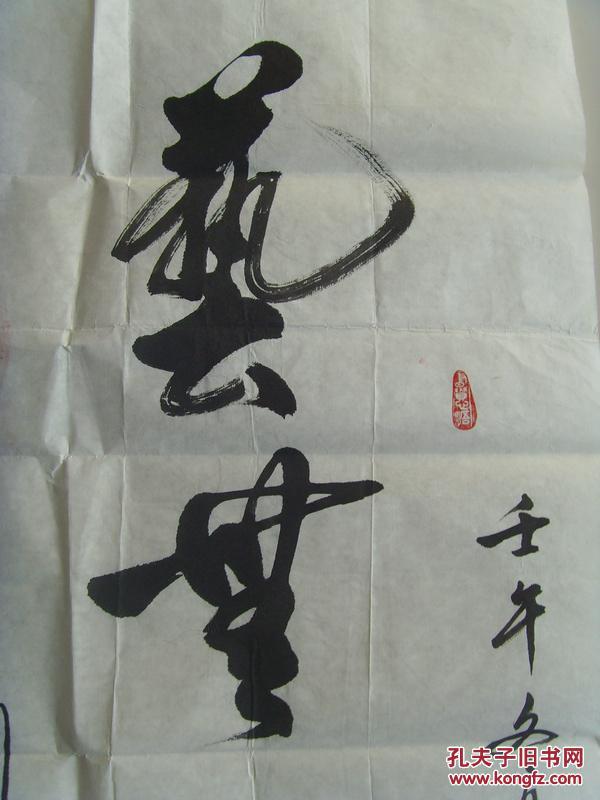 壬午冬
藝無
孔夫子旧书网
www.kongfz.com